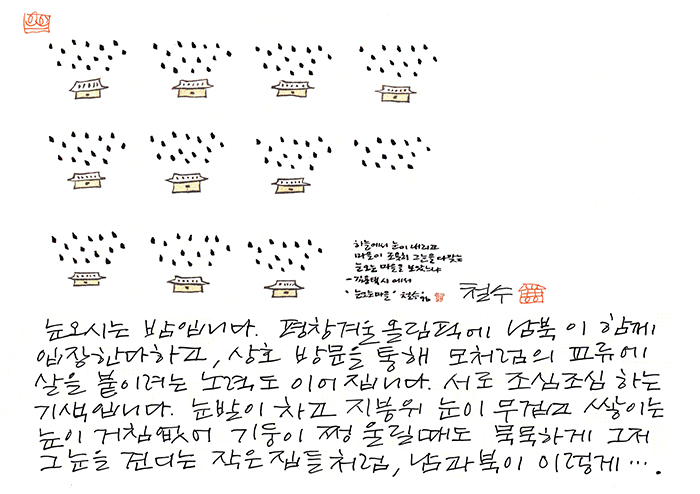 하늘에서 눈이 내리고
마을이 조용히 그 눈을 다 맞는
눈오는 마을을 보았느냐
-김용택 시에서
"눈오는 마을" 철수
철수
눈오시는 밤입니다. 평창겨울올림픽에 남북이 함께
입장한다하고, 상호 방문을 통해 모처럼의 교류에
살을 붙이려는 노력도 이어집니다. 서로 조심조심 하는
기색입니다. 눈발이 차고 지붕위 눈이 무겁고 쌓이는
눈이 거침없어 기둥이 쩡 울릴때도 묵묵하게 그저
그 눈을 견디는 작은집들처럼, 남과북이 이렇게….